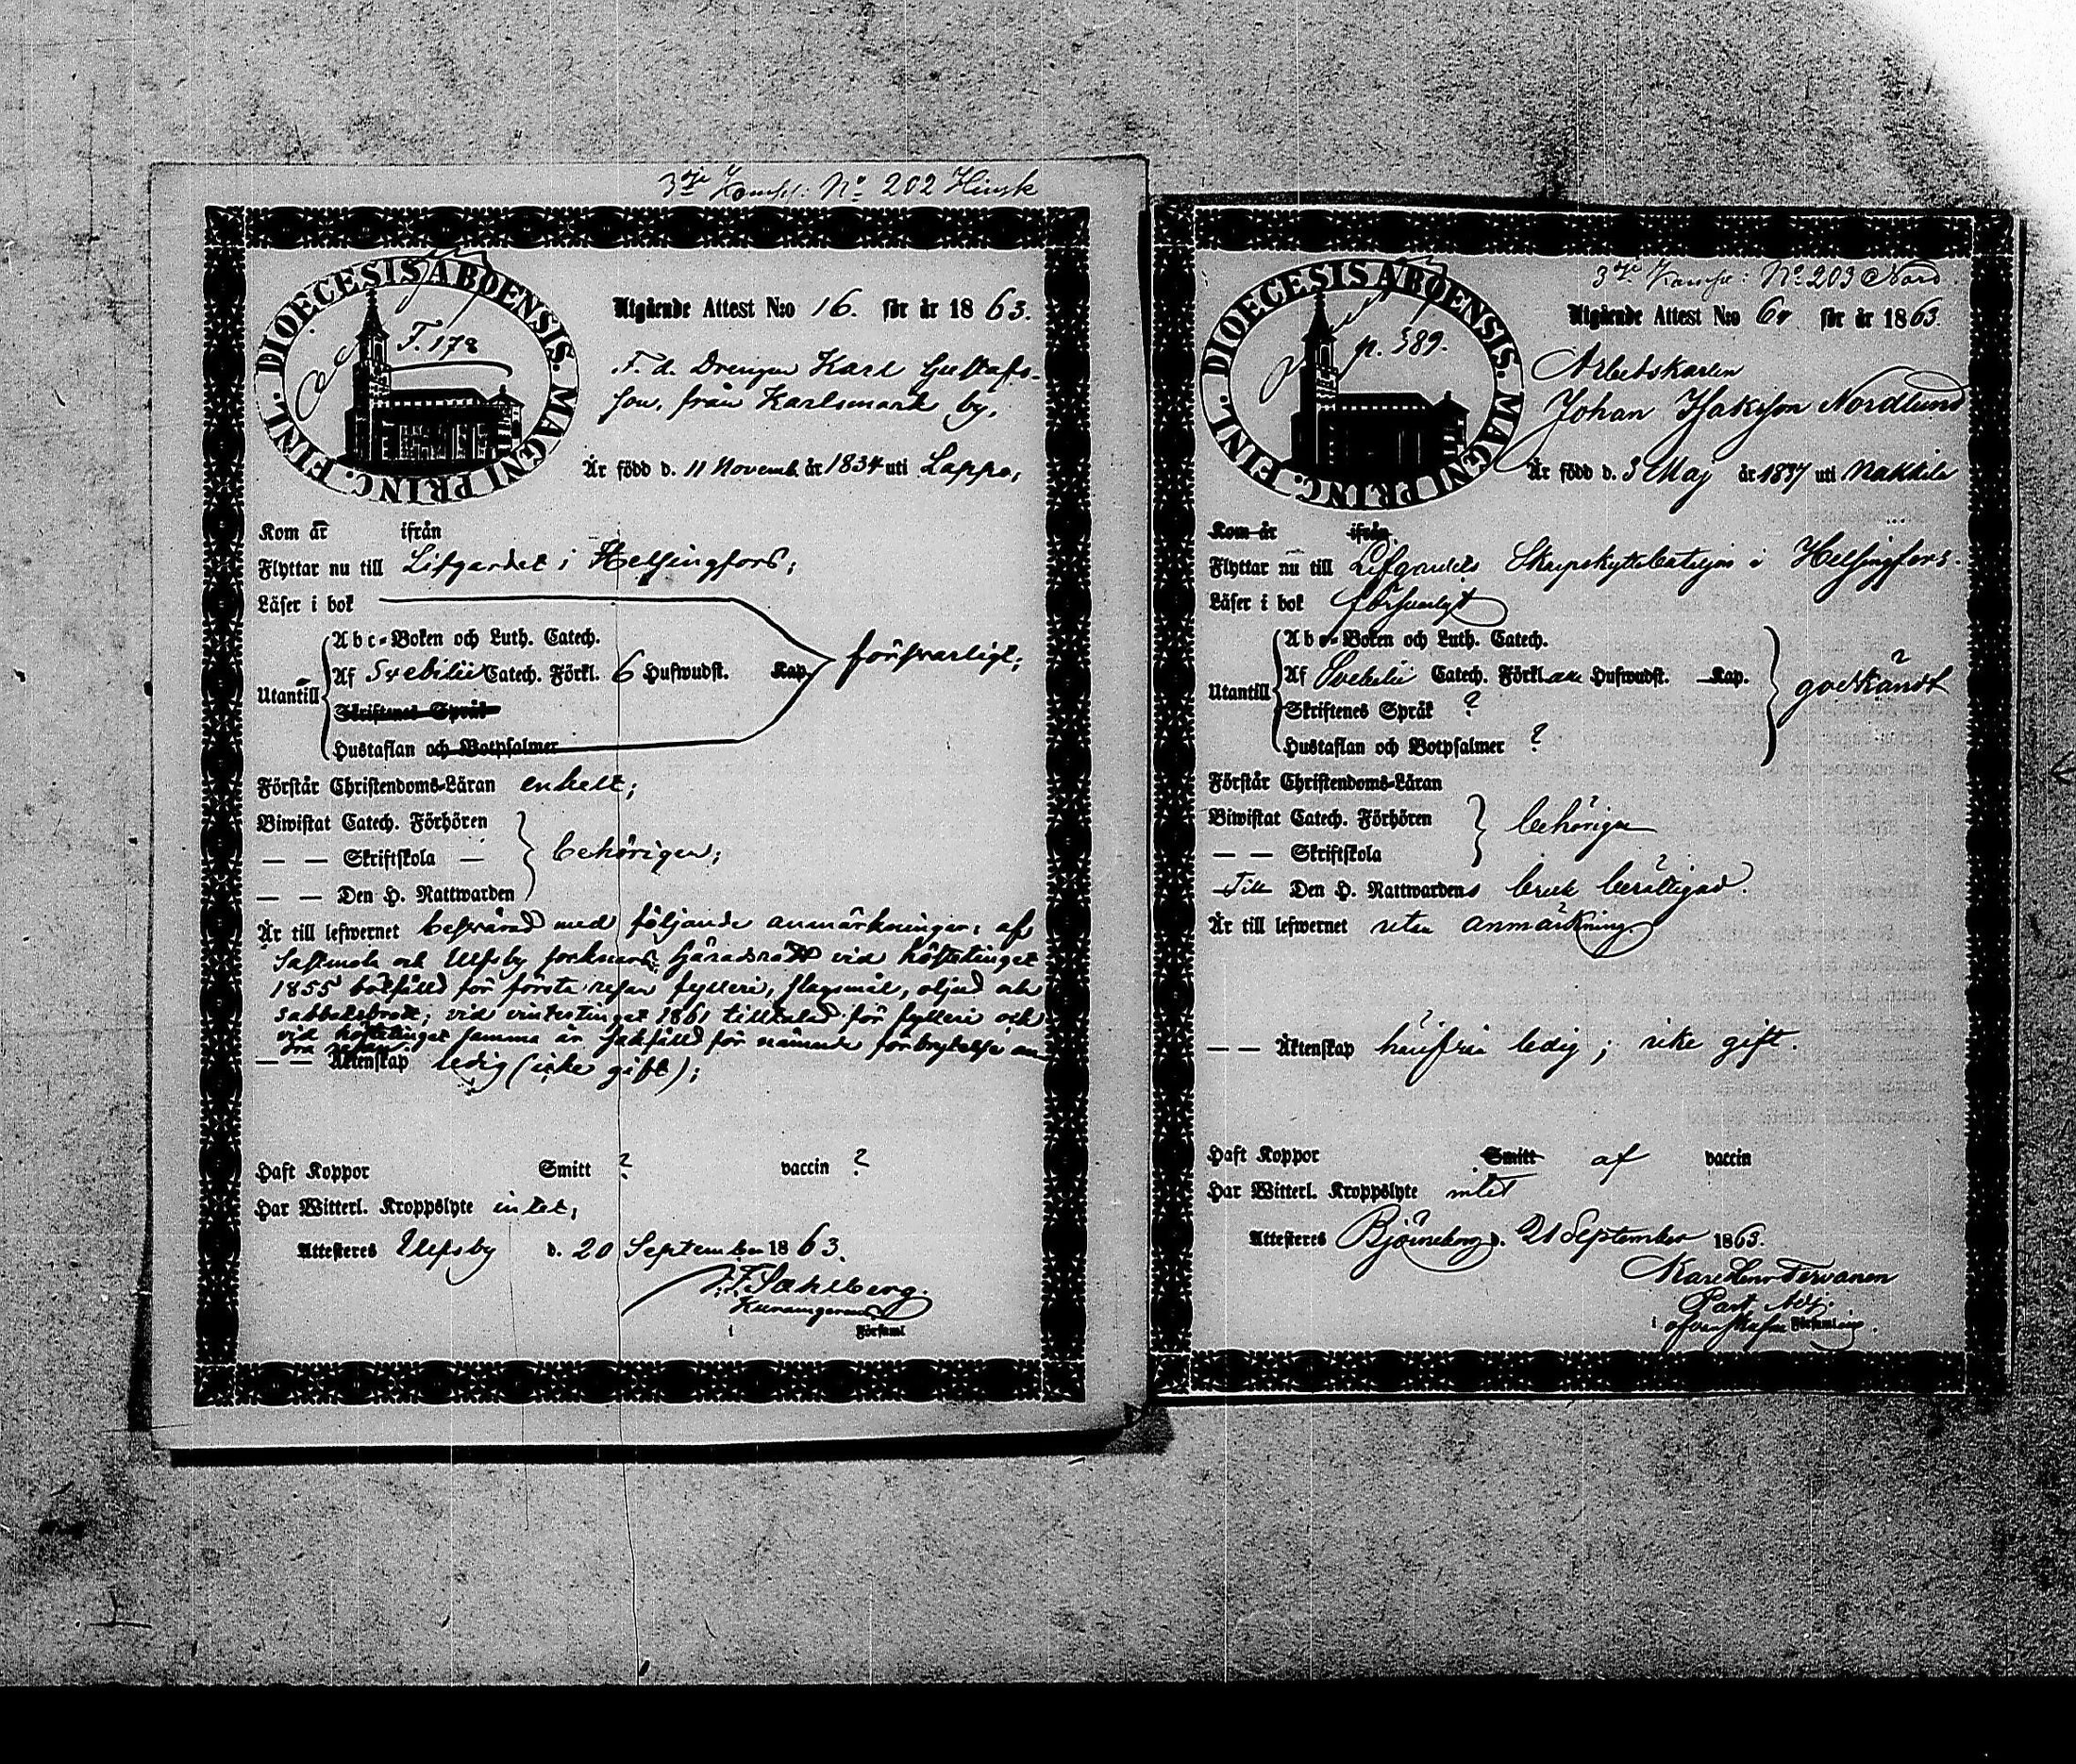 3dje Komp: No 202 Hinsk
DIOECESIS ABOENSIS. MAGNI PRINC. FINL.
F. 178
Utgående Attest N:o 16. för år 1863.
F. d. Drengen Karl Gustafs-
son, från Karlsmark by,
Är född d. 11 Novemb. år 1834 uti Lappo,
Kom år ifrån
Flyttar nu till Lifgardet i Helsingfors;
Läser i bok
Abc-Boken och Luth. Catech.
Utantill Af Svebilii Catech. Förkl. 6 Hufwudst. Kap. försvarligt;
Skriftenes Språk
Hustaflan och Botpsalmer
Förstår Christendoms-Läran enkelt;
Biwistat Catech. Förhören
— — Skriftskola — behörigen;
— — Den H. Nattwarden
Är till lefwernet besvärad med följande anmärkningar: af
Sastmola och Ulfsby socknars Häradsrätt vid hösttinget
1855 bötfälld för första resan fylleri, slagsmål, oljud och
sabbatsbrott; vid vintertinget 1861 tilltalad för fylleri och
vid hösttinget samma år sakfälld för nämnde förbrytelse an-
dra resan.
— — Äktenskap ledig (icke gift);
Haft Koppor Smitt ? vaccin ?
Har Witterl. Kroppslyte intet;
Attesteras Ulfsby d. 20 September 1863.
F. Sahlberg.
i Församl
3dje Komp: No 203 Nord.
DIOECESIS ABOENSIS. MAGNI PRINC. FINL.
p. 389.
Utgående Attest N:o för år 1863.
Arbetskarlen
Johan Isaksson Nordlund
Är född d. 3 Maj år 1837 uti Nakkila
Kom år ifrån
Flyttar nu till Lifgardets Skarpskyttebataljon i Helsingfors.
Läser i bok försvarligt
Abc-Boken och Luth. Catech.
Utantill Af Svebilii Catech. Förkl. alla Hufwudst. Kap. godkändt
Skriftenes Språk ?
Hustaflan och Botpsalmer ?
Förstår Christendoms-Läran
Biwistat Catech. Förhören
— — Skriftskola behörigen
Till Den H. Nattwardens bruk berättigad.
Är till lefwernet utan anmärkning.
— — Äktenskap härifrån ledig; icke gift.
Haft Koppor Smitt af vaccin
Har Witterl. Kroppslyte intet
Attesteras Björneborg d. 21 September 1863.
Karl Henr Tervonen
Past. Adj.
i ofvanskrifna Församling.